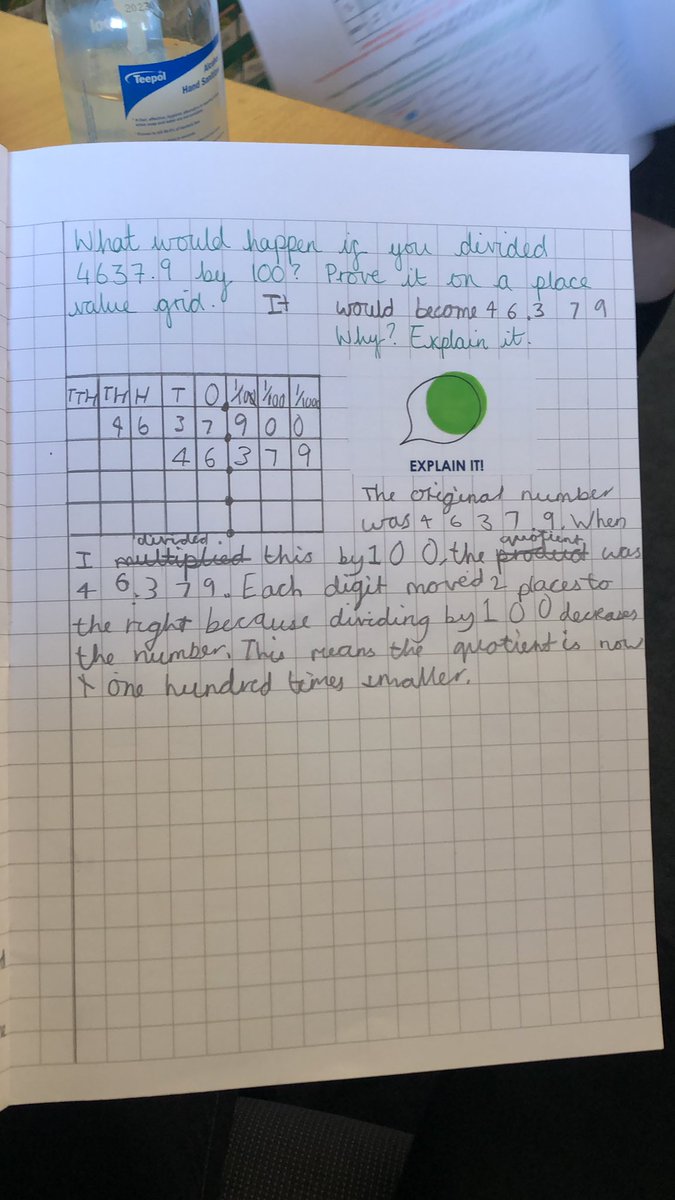 2023
Teepol
Alcohol
Hand Sanitiser
What would happen if you divided
4637.9 by 100? Prove it on a place
value grid. It would become 46.379
Why? Explain it.
TTH TH H T O . 1/100 1/100 1/1000
4 6 3 7 . 9 0 0
4 6 . 3 7 9
EXPLAIN IT!
The original number
was 4637.9. When
divided. quotient
I multiplied this by 100, the product was
46.379. Each digit moved 2 places to
the right because dividing by 100 decreases
the number. This means the quotient is now
one hundred times smaller.